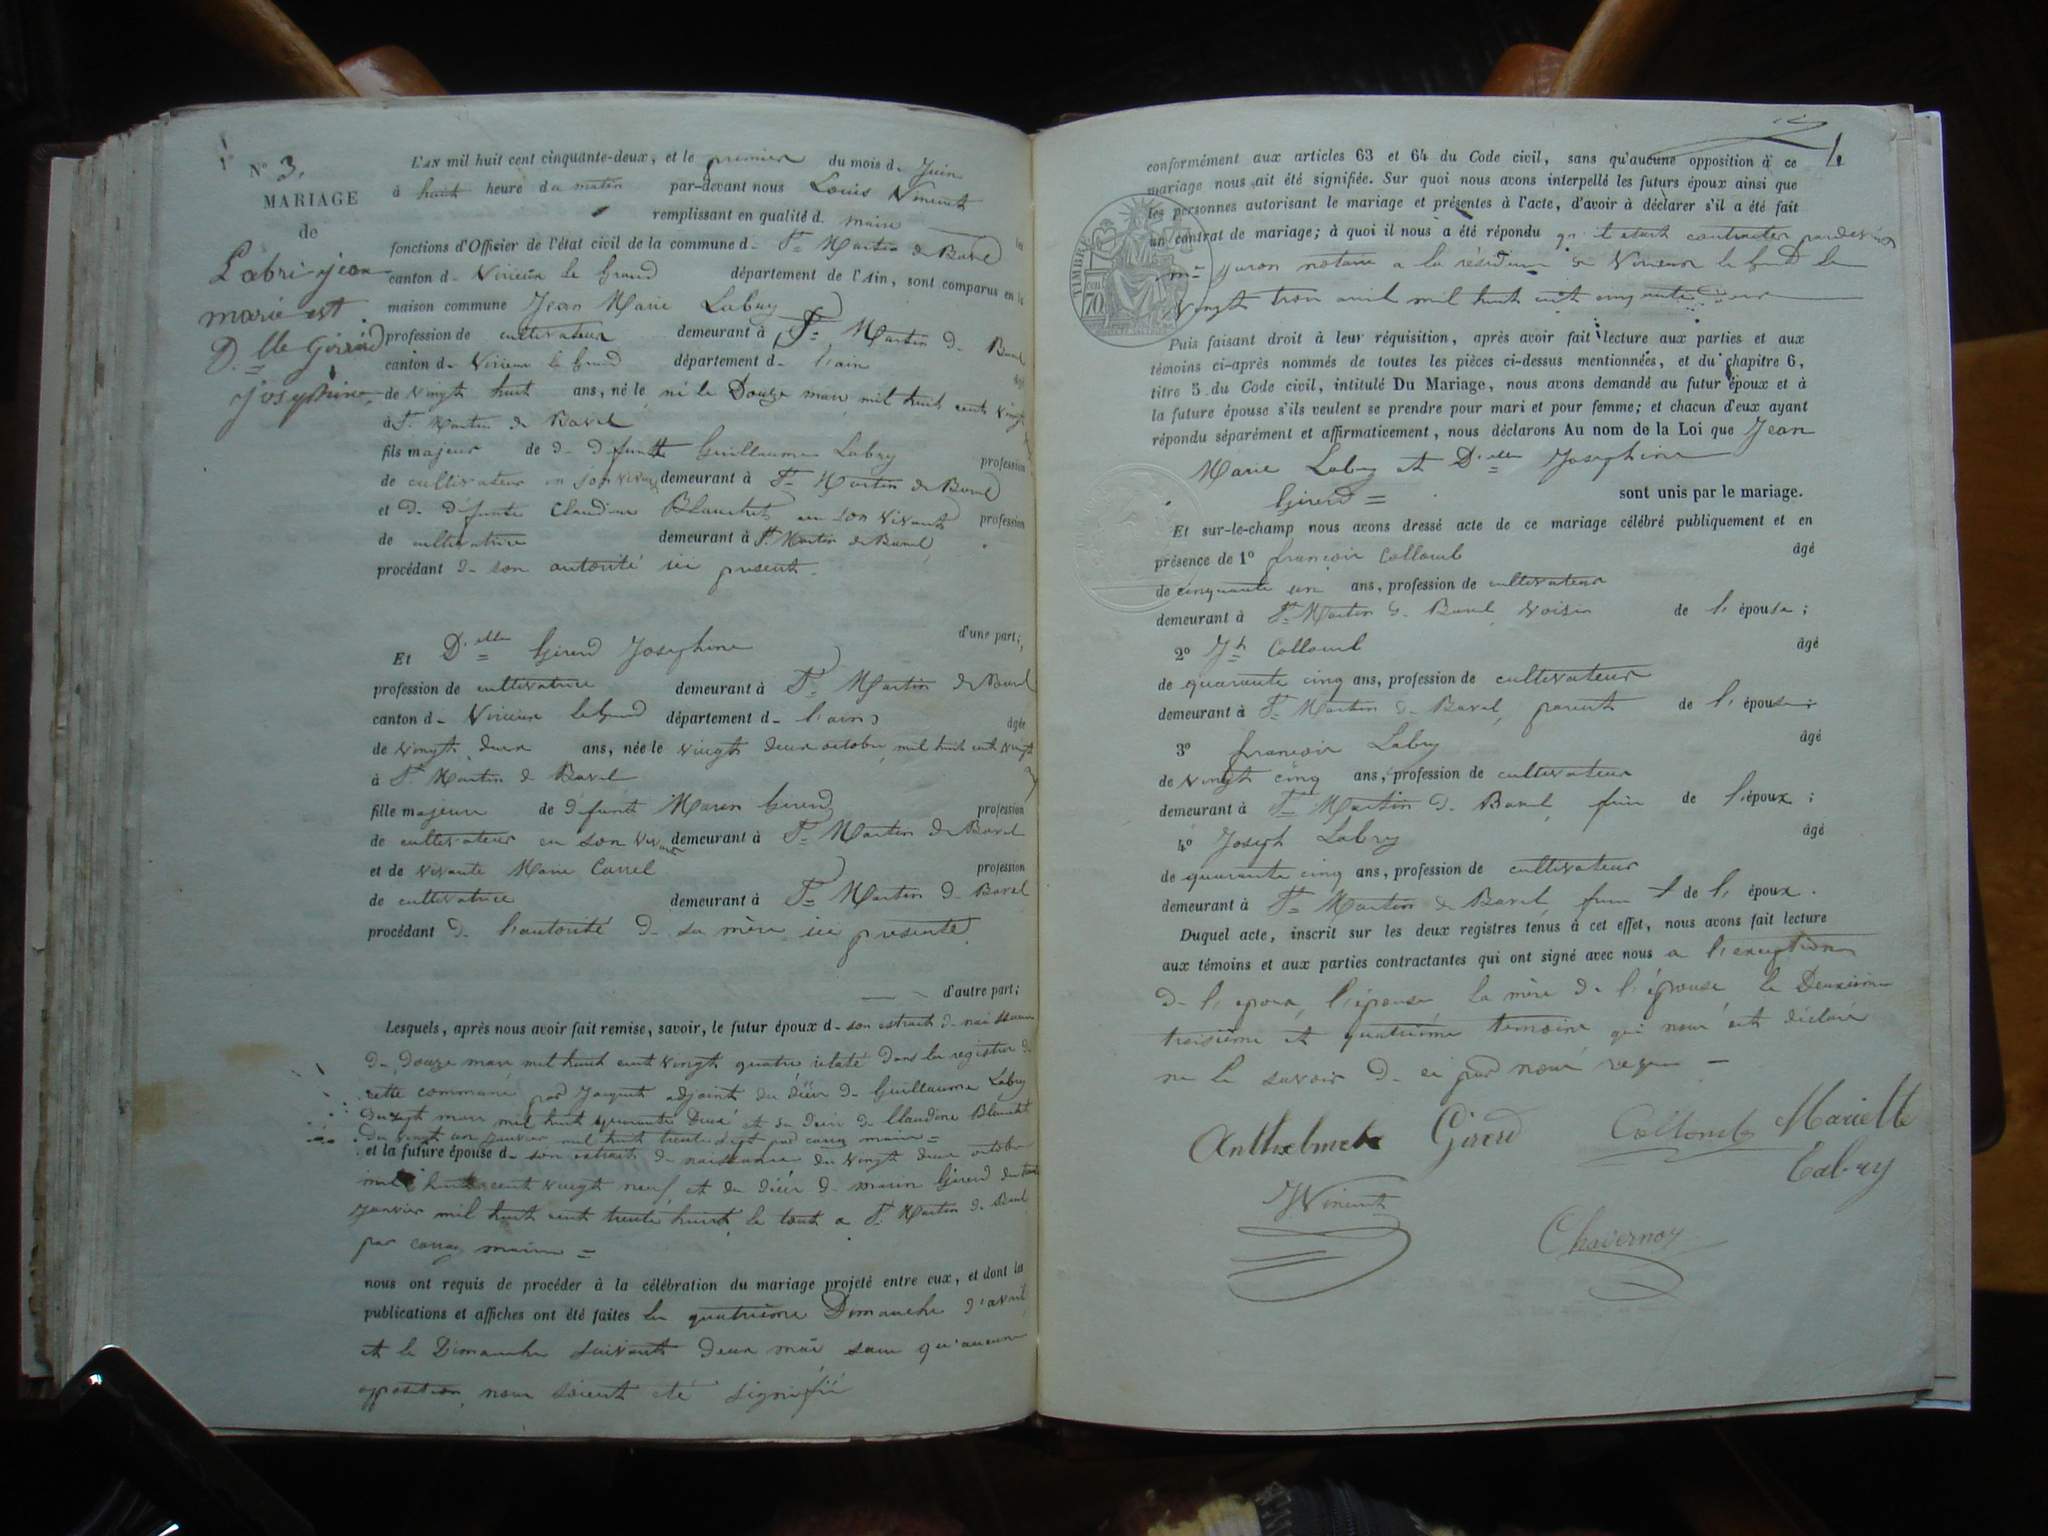 N° 3.
MARIAGE
de
Labri jean
marie est
D.lle Girerd
josephine
L'AN mil huit cent cinquante-deux, et le premier du mois d- Juin
à huit heure du matin par-devant nous Louis Vincent
remplissant en qualité d. maire
fonctions d'Officier de l'état civil de la commune d- St Martin de Bavel
canton d- Virieu le Grand département de l'Ain, sont comparus en la
maison commune Jean Marie Labry
profession de cultivateur demeurant à St Martin d- Bavel
canton d- Virieu le Grand département d- l'ain
de vingt huit ans, né le né le Douze mars mil huit cent vingt
à St Martin de Bavel
fils majeur de d- défunt Guillaume Labry profession
de cultivateur en son vivant demeurant à St Martin de Bavel
et d- défunte Claudine Blanchet en son vivant profession
de cultivatrice demeurant à St Martin de Bavel
procédant d- son autorité ici présent.
d'une part;
Et D.elle Girerd Josephine
profession de cultivatrice demeurant à St Martin de Bavel
canton d- Virieu le Grand département d- l'ain âgée
de vingt deux ans, née le vingt deux octobre mil huit cent vingt
à St Martin de Bavel
fille majeure de défunt Marin Girerd profession
de cultivateur en son vivant demeurant à St Martin de Bavel
et de vivante Marie Carrel profession
de cultivatrice demeurant à St Martin d- Bavel
procédant d- l'autorité d- sa mère ici présente
d'autre part;
Lesquels, après nous avoir fait remise, savoir, le futur époux d- son extrait d- naissance
du douze mars mil huit cent vingt quatre relaté dans les registres de
cette commune par Jaquet adjoint du décès d- Guillaume Labry
mars mil huit quarante Deux et du décès de Claudine Blanchet
du vingt un janvier mil huit trente sept par carrez maire =
et la future épouse d- son extrait de naissance du vingt deux octobre
mil huit cent vingt neuf et du décès d- marin Girerd du
janvier mil huit cent trente huit le tout a St Martin de Bavel
par carrez maire =
nous ont requis de procéder à la célébration du mariage projeté entre eux, et dont la
publications et affiches ont été faites le quatrième Dimanche d'avril
et le Dimanche suivant deux mai sans qu'aucune
opposition nous soient été signifié
conformément aux articles 63 et 64 du Code civil, sans qu'aucune opposition à ce
mariage nous ait été signifiée. Sur quoi nous avons interpellé les futurs époux ainsi que
les personnes autorisant le mariage et présentes à l'acte, d'avoir à déclarer s'il a été fait
un contrat de mariage; à quoi il nous a été répondu
notaire a la résidence de Virieu le Grand le
vingt trois avril mil huit cent cinquante deux
TIMBRE
70
Puis faisant droit à leur réquisition, après avoir fait lecture aux parties et aux
témoins ci-après nommés de toutes les pièces ci-dessus mentionnées, et du chapitre 6,
titre 5 du Code civil, intitulé Du Mariage, nous avons demandé au futur époux et à
la future épouse s'ils veulent se prendre pour mari et pour femme; et chacun d'eux ayant
répondu séparément et affirmativement, nous déclarons Au nom de la Loi que Jean
Marie Labry et D.elle Josephine
Girerd = sont unis par le mariage.
Et sur-le-champ nous avons dressé acte de ce mariage célébré publiquement et en
présence de 1° françois Collomb âgé
de cinquante un ans, profession de cultivateur
demeurant à St Martin d- Bavel voisin de l'épouse;
2° Jh Collomb âgé
de quarante cinq ans, profession de cultivateur
demeurant à St Martin d- Bavel, parent de l'épouse;
3° françois Labry âgé
de vingt cinq ans, profession de cultivateur
demeurant à St Martin d- Bavel, frère de l'époux;
4° Joseph Labry âgé
de quarante cinq ans, profession de cultivateur
demeurant à St Martin de Bavel, frère de l'époux.
Duquel acte, inscrit sur les deux registres tenus à cet effet, nous avons fait lecture
aux témoins et aux parties contractantes qui ont signé avec nous a l'exception
de l'époux, l'épouse la mère de l'épouse le Deuxième
troisième et quatrième témoins qui nous ont déclaré
ne le savoir d- ce par nous requis
Anthelmete Girerd Collomb Mariette
Labry
Vincent
Chavernoy